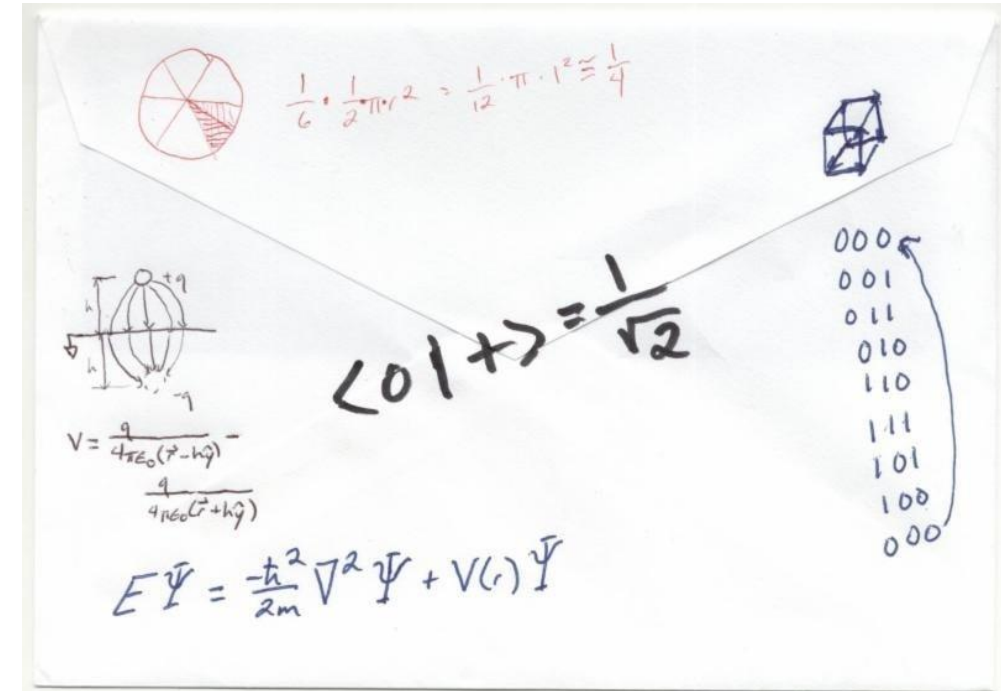 1/6 · 1/2 π · r² = 1/12 · π · 1² ≅ 1/4
+q
h
h
-q
V = q/(4πε₀(r⃗-hŷ)) -
q/(4πε₀(r⃗+hŷ))
<0|+> = 1/√2
000
001
011
010
110
111
101
100
000
EΨ = -ħ²/2m ∇²Ψ + V(r)Ψ